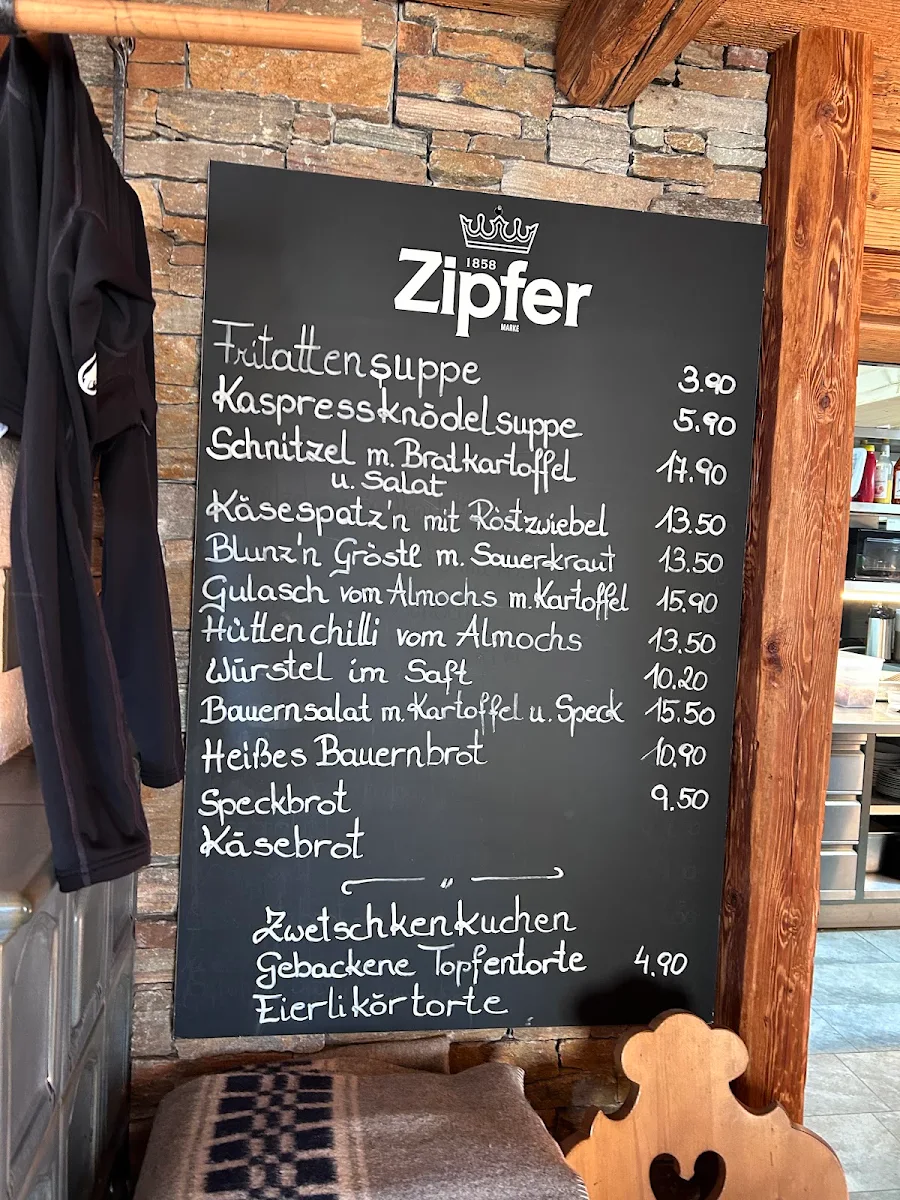 1858
Zipfer
MARKE
Fritattensuppe 3.90
Kaspressknödelsuppe 5.90
Schnitzel m. Bratkartoffel 17.90
u. Salat
Käsespatz'n mit Röstzwiebel 13.50
Blunz'n Gröstl m. Sauerkraut 13.50
Gulasch vom Almochs m. Kartoffel 15.90
Hüttenchilli vom Almochs 13.50
Würstel im Saft 10.20
Bauernsalat m. Kartoffel u. Speck 15.50
Heißes Bauernbrot 10.90
Speckbrot 9.50
Käsebrot
Zwetschkenkuchen
Gebackene Topfentorte 4.90
Eierlikörtorte